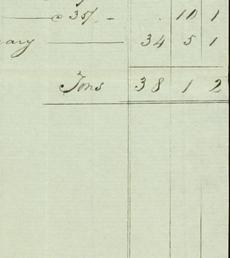 @ 35/. - . 10 1
ary 34 5 1
Tons 38 1 2